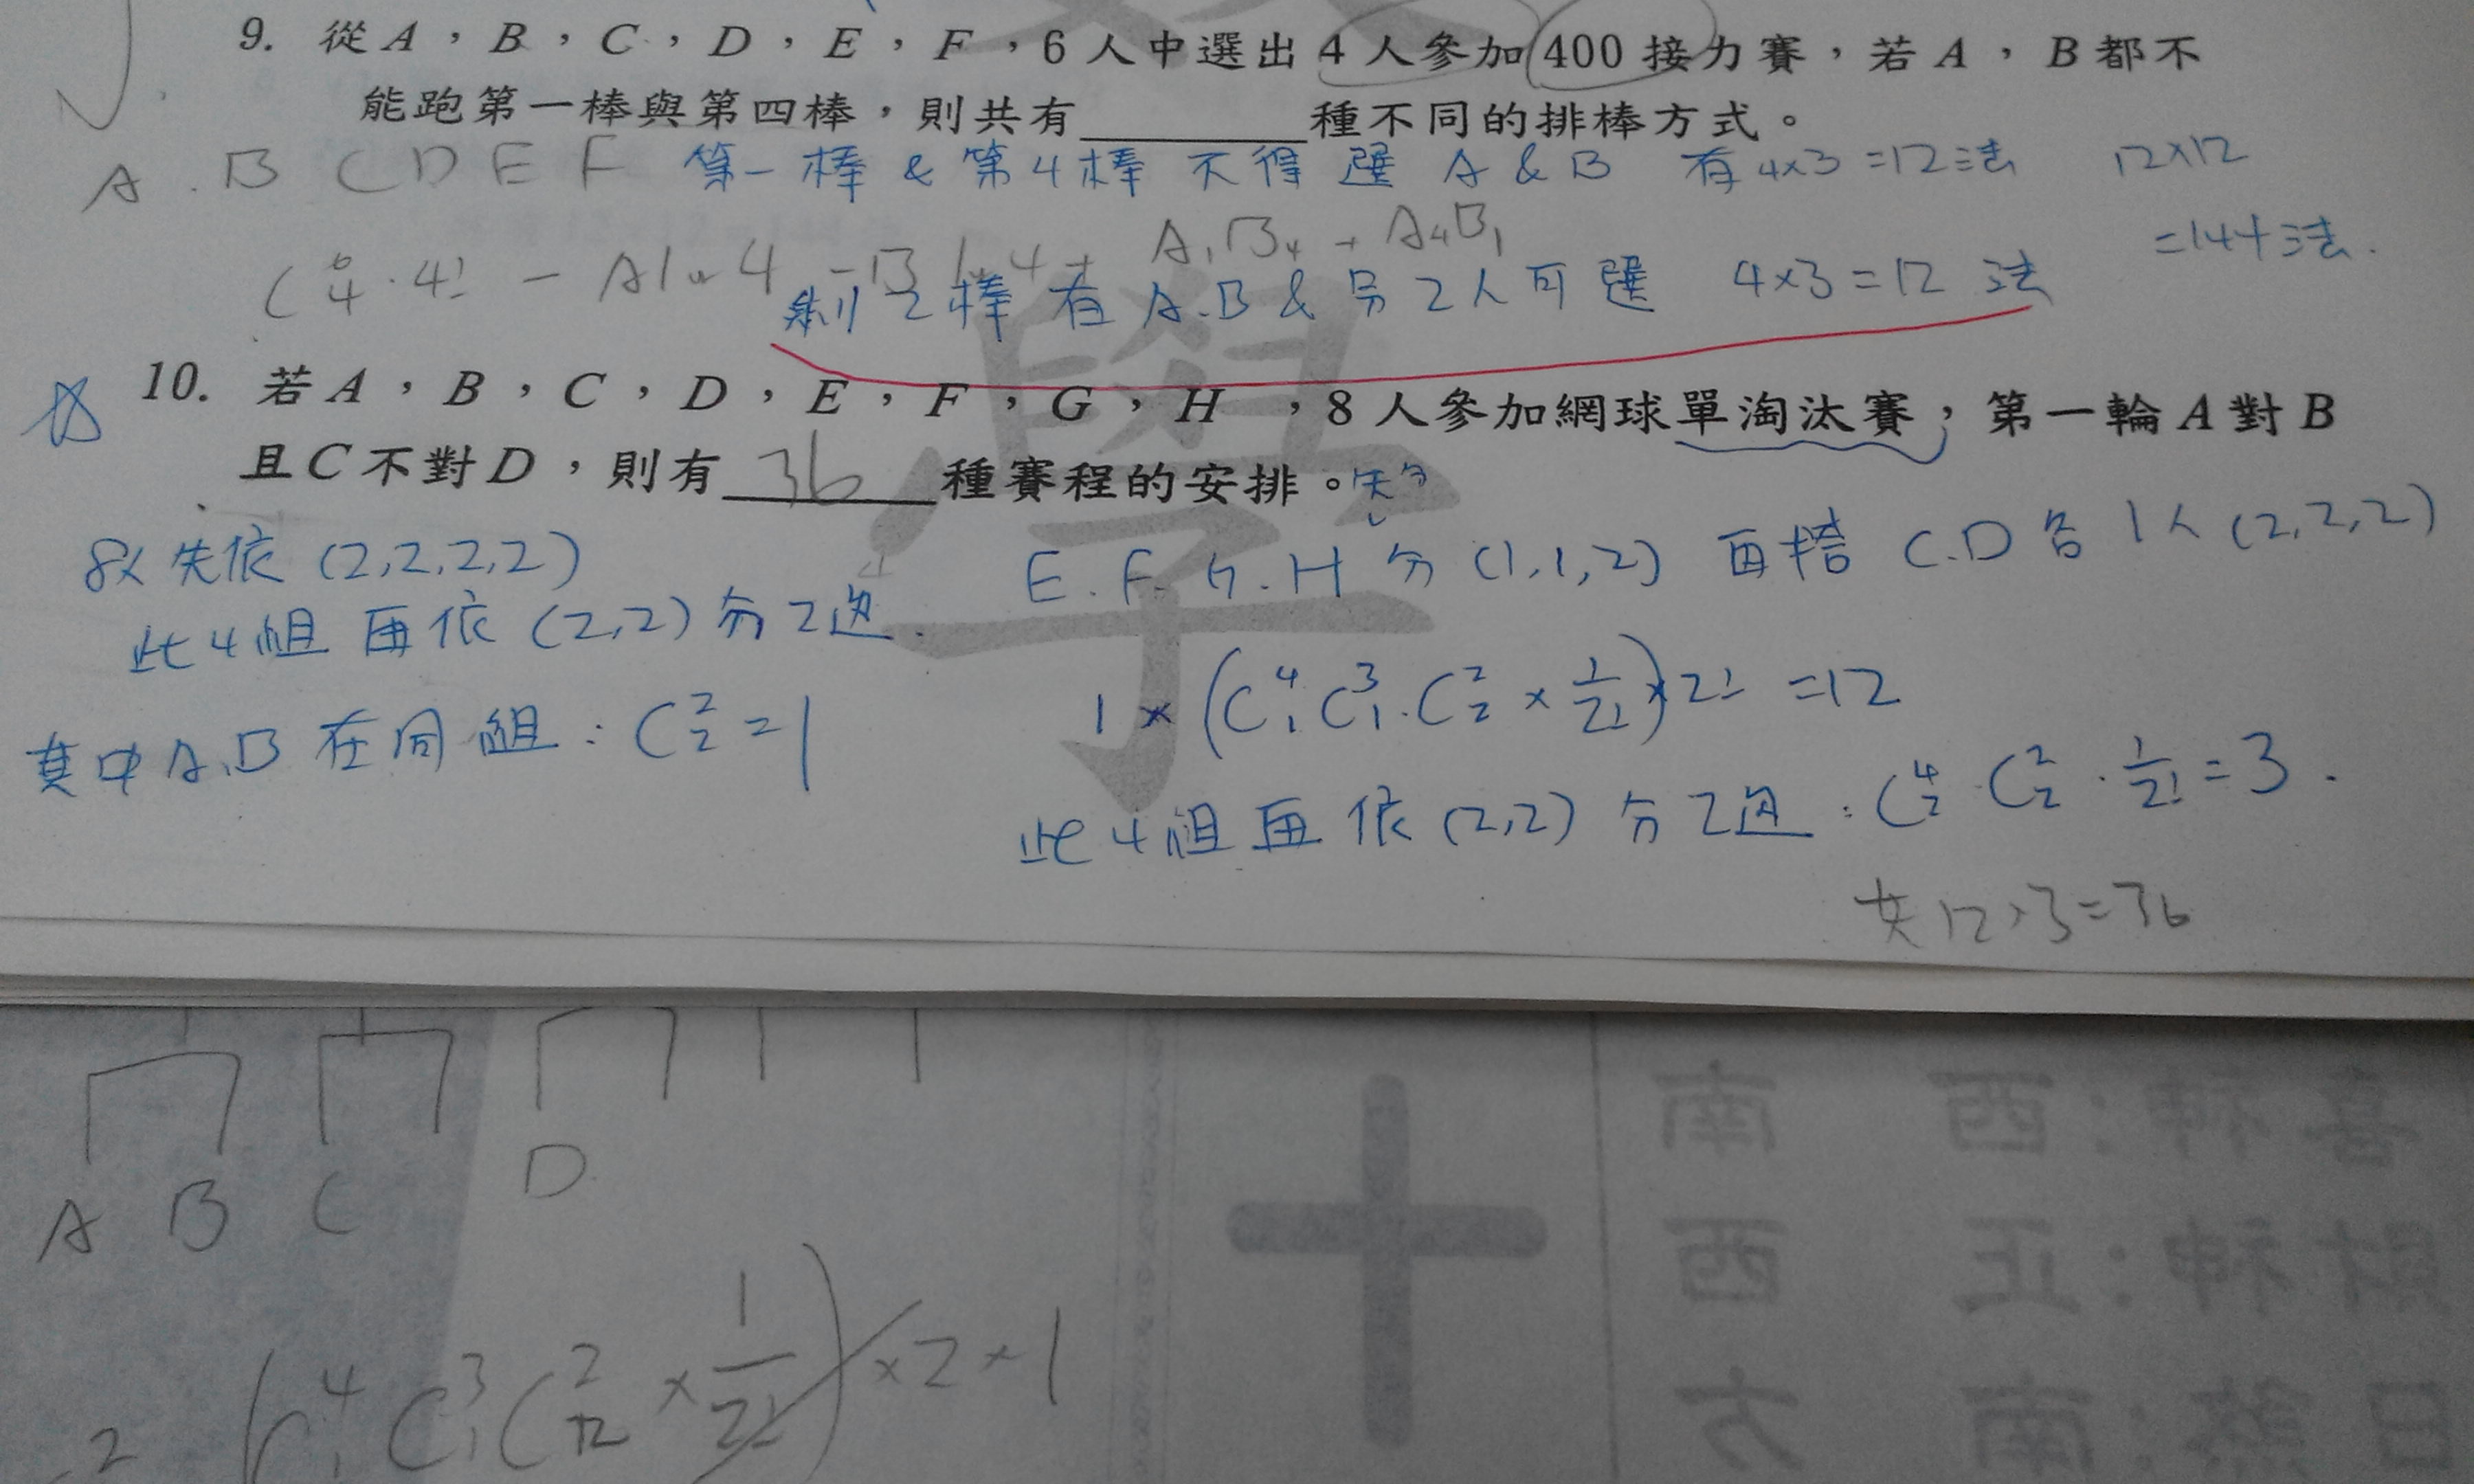 9. 從 A，B，C，D，E，F，6 人中選出 4 人參加 400 接力賽，若 A，B 都不
能跑第一棒與第四棒，則共有________種不同的排棒方式。
A . B C D E F 第一棒 & 第4棒 不得 選 A & B 有 4×3=12法 12×12
=144法.
A₁B₄ + A₄B₁
剩 2棒 有 A.B & 另 2人可選 4×3=12 法
10. 若 A，B，C，D，E，F，G，H ，8 人參加網球單淘汰賽，第一輪 A 對 B
且 C 不對 D，則有 36 種賽程的安排。
先分
E.F.G.H 分 (1,1,2) 再搭 C.D 各 1人 (2,2,2)
8人先依 (2,2,2,2)
此4組再依 (2,2) 分2邊.
1×(C⁴₁C³₁.C²₂×1/2!)×2! =12
其中A.B 在同組：C²₂=1
此4組再依 (2,2) 分2邊：C⁴₂·C²₂·1/2!=3.
共12×3=36
A B C D
南 西 喜神:
西 正 財神:
方 南 日煞:
十
2 (C⁴₁C³₁C²₂×1/2!)×2×1